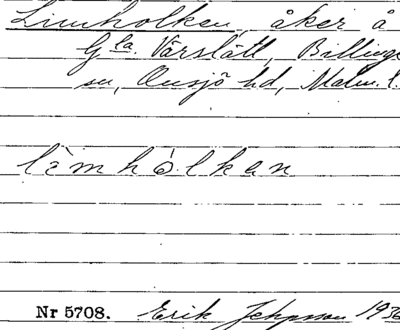 Limholken, åker å
G la. Värslätt, Billinge
sn, Onsjö hd, Malm. l.
lìmhòlkan
Nr 5708. Erik Jeppsson 1936